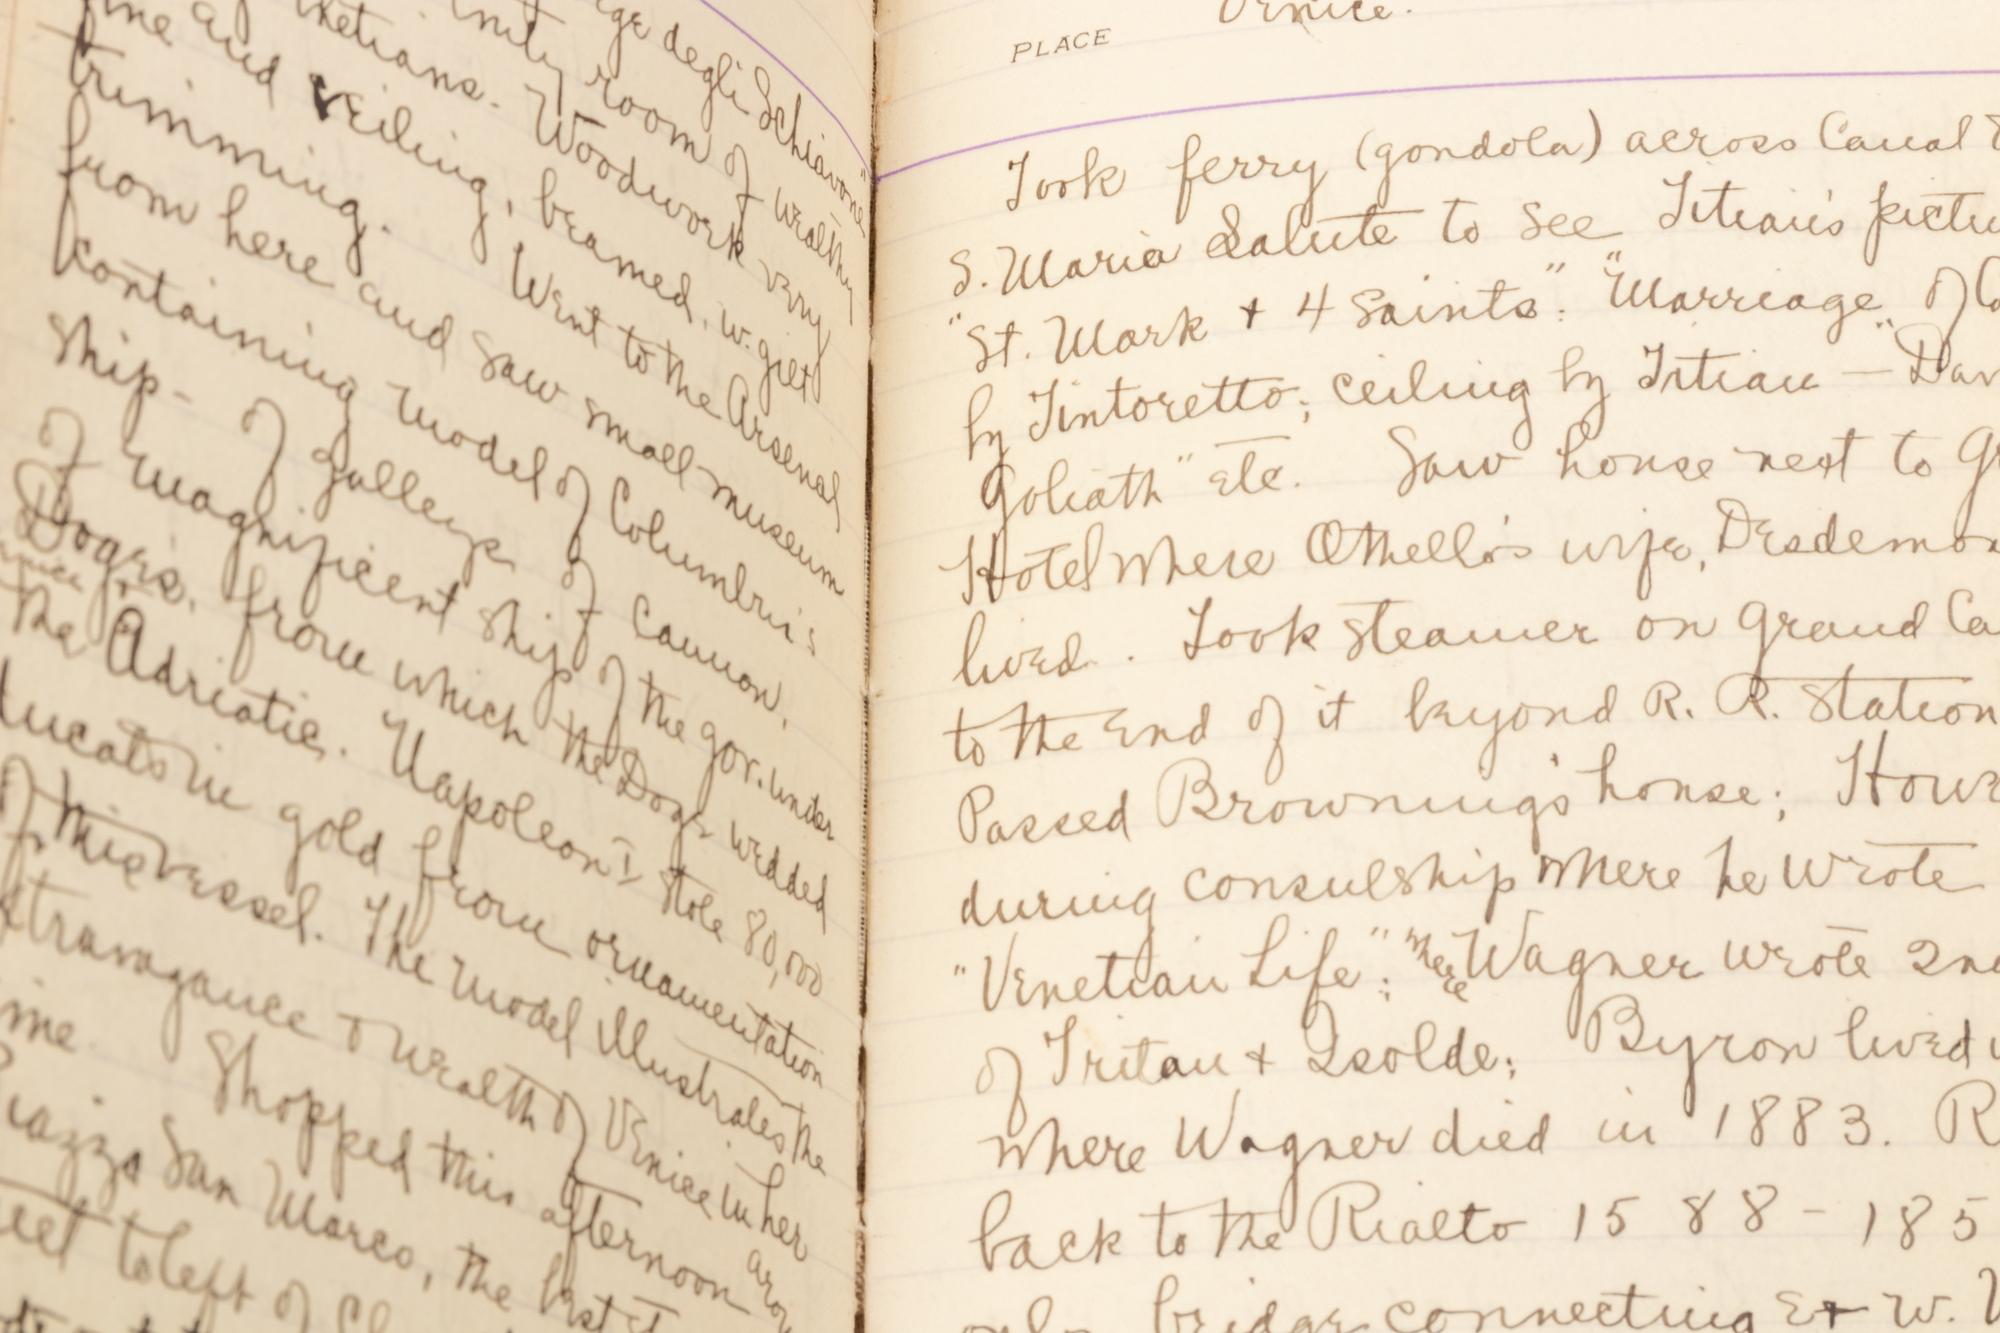 ege degli Schiavone"
netians. room of wealthy
and ceiling, Woodwork very
trimming. beamed, w. gilt
from here and saw small museum
Went to the Arsenal
containing model of Columbus's
ship - of galleys of Cannon,
of magnificent ship of the gov. under
Doges, from which the Doge wedded
the Adriatic. Napoleon I stole 80,000
ducats in gold from ornamentation
of this vessel. The model illustrates the
extravagance & wealth of Venice in her
Shopped this afternoon
iazza San Marco, the
to left of
PLACE Venice.
Took ferry (gondola) across Canal
S. Maria Salute to see Titian's pictu
"St. Mark + 4 Saints". "Marriage of
by Tintoretto; ceiling by Titian — "Dav
Goliath" etc. Saw house next to Gr
Hotel where Othello's wife, Desdemon
lived. Took steamer on Grand Ca
to the end of it beyond R. R. Station
Passed Browning's house; Howe
during consulship where he wrote
"Venetian Life"; where Wagner wrote 2nd
of Tritan + Isolde; Byron lived
where Wagner died in 1883. R
back to the Rialto 1588 - 185
only bridge connecting E + W.